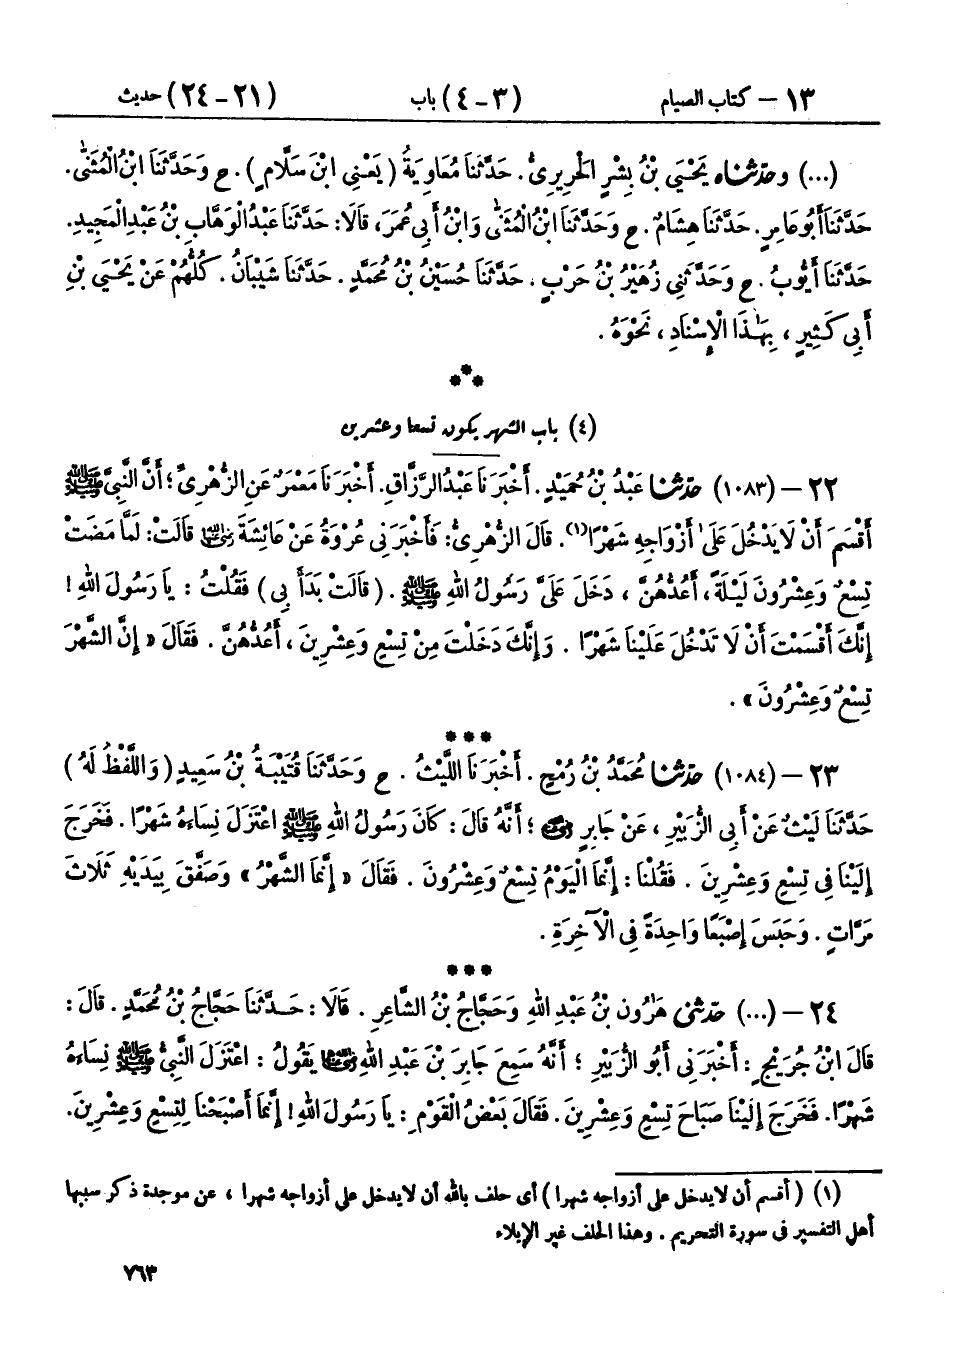 ١٣ – كتاب الصيام (٣ – ٤) باب (٢١ – ٢٤) حديث
(...) وحَدَّثَنَاه يَحْيَى بْنُ بِشْرٍ الْحَرِيرِىُّ. حَدَّثَنَا مُعَاوِيَةُ ( يَعْنِى ابْنَ سَلَّامٍ ) . ح وَحَدَّثَنَا ابْنُ الْمُثَنَّى.
حَدَّثَنَا أَبُو عَامِرٍ. حَدَّثَنَا هِشَامٌ . ح وَحَدَّثَنَا ابْنُ الْمُثَنَّى وَابْنُ أَبِى عُمَرَ، قَالَا: حَدَّثَنَا عَبْدُ الْوَهَّابِ بْنُ عَبْدِ الْمَجِيدِ.
حَدَّثَنَا أَيُّوبُ . ح وَحَدَّثَنِى زُهَيْرُ بْنُ حَرْبٍ . حَدَّثَنَا حُسَيْنُ بْنُ مُحَمَّدٍ . حَدَّثَنَا شَيْبَانُ . كُلُّهُمْ عَنْ يَحْيَى بْنِ
أَبِى كَثِيرٍ ، بِهَٰذَا الْإِسْنَادِ ، نَحْوَهُ .
***
(٤) باب الشهر يكون تسعا وعشرين
٢٢ – (١٠٨٣) حَدَّثَنَا عَبْدُ بْنُ حُمَيْدٍ . أَخْبَرَنَا عَبْدُ الرَّزَّاقِ. أَخْبَرَنَا مَعْمَرٌ عَنِ الزُّهْرِىِّ ؛ أَنَّ النَّبِىَّ ﷺ
أَقْسَمَ أَنْ لَا يَدْخُلَ عَلَىٰ أَزْوَاجِهِ شَهْرًا(١). قَالَ الزُّهْرِىُّ: فَأَخْبَرَنِى عُرْوَةُ عَنْ عَائِشَةَ رضي الله عنها قَالَتْ: لَمَّا مَضَتْ
تِسْعٌ وَعِشْرُونَ لَيْلَةً، أَعُدُّهُنَّ ، دَخَلَ عَلَىَّ رَسُولُ اللهِ ﷺ . ( قَالَتْ بَدَأَ بِى ) فَقُلْتُ : يَا رَسُولَ اللهِ !
إِنَّكَ أَقْسَمْتَ أَنْ لَا تَدْخُلَ عَلَيْنَا شَهْرًا . وَإِنَّكَ دَخَلْتَ مِنْ تِسْعٍ وَعِشْرِينَ ، أَعُدُّهُنَّ . فَقَالَ « إِنَّ الشَّهْرَ
تِسْعٌ وَعِشْرُونَ » .
***
٢٣ – (١٠٨٤) حَدَّثَنَا مُحَمَّدُ بْنُ رُمْحٍ . أَخْبَرَنَا اللَّيْثُ . ح وَحَدَّثَنَا قُتَيْبَةُ بْنُ سَعِيدٍ ( وَاللَّفْظُ لَهُ )
حَدَّثَنَا لَيْثٌ عَنْ أَبِى الزُّبَيْرِ ، عَنْ جَابِرٍ رضي الله عنه ؛ أَنَّهُ قَالَ : كَانَ رَسُولُ اللهِ ﷺ اعْتَزَلَ نِسَاءَهُ شَهْرًا . فَخَرَجَ
إِلَيْنَا فِى تِسْعٍ وَعِشْرِينَ . فَقُلْنَا : إِنَّمَا الْيَوْمُ تِسْعٌ وَعِشْرُونَ . فَقَالَ « إِنَّمَا الشَّهْرُ » وَصَفَّقَ بِيَدَيْهِ ثَلَاثَ
مَرَّاتٍ . وَحَبَسَ إِصْبَعًا وَاحِدَةً فِى الْآخِرَةِ .
***
٢٤ – (...) حَدَّثَنِى هَارُونُ بْنُ عَبْدِ اللهِ وَحَجَّاجُ بْنُ الشَّاعِرِ . قَالَا : حَدَّثَنَا حَجَّاجُ بْنُ مُحَمَّدٍ . قَالَ :
قَالَ ابْنُ جُرَيْجٍ : أَخْبَرَنِى أَبُو الزُّبَيْرِ ؛ أَنَّهُ سَمِعَ جَابِرَ بْنَ عَبْدِ اللهِ رضي الله عنهما يَقُولُ : اعْتَزَلَ النَّبِىُّ ﷺ نِسَاءَهُ
شَهْرًا. فَخَرَجَ إِلَيْنَا صَبَاحَ تِسْعٍ وَعِشْرِينَ . فَقَالَ بَعْضُ الْقَوْمِ : يَا رَسُولَ اللهِ ! إِنَّمَا أَصْبَحْنَا لِتِسْعٍ وَعِشْرِينَ.
(١) ( أقسم أن لا يدخل على أزواجه شهرا ) أى حلف بالله أن لا يدخل على أزواجه شهرا ، عن موجدة ذكر سببها
أهل التفسير فى سورة التحريم . وهذا الحلف غير الإيلاء
٧٦٣